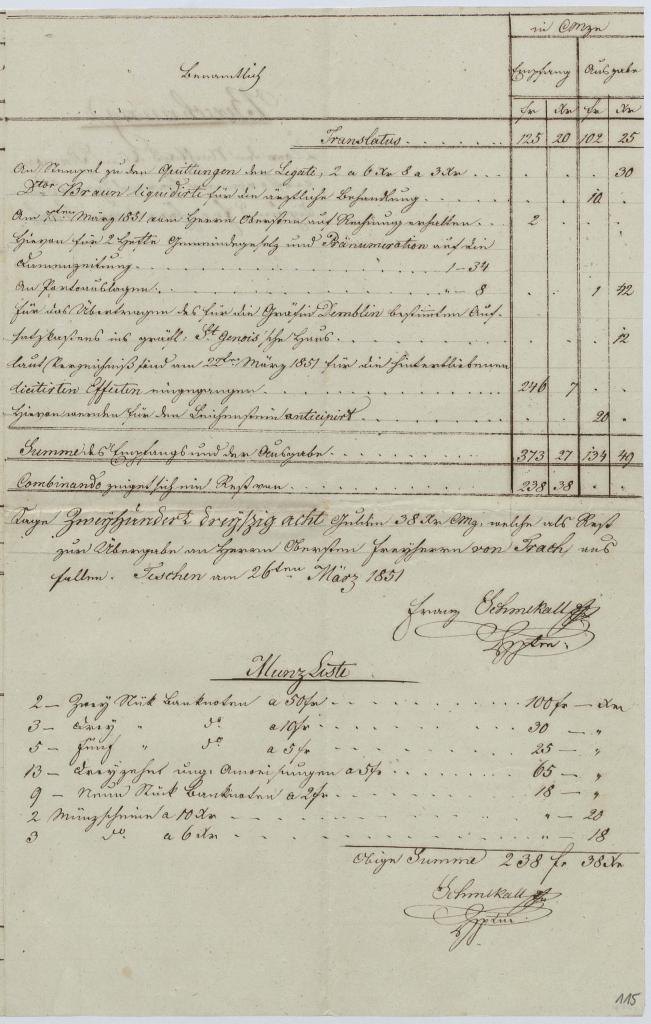 in CMze
Benamtlich
Empfang Ausgabe
fr Xr fr Xr
Translatus . . . . . . 125 20 102 25
An Stempel zu den Quittungen der Legate, 2 a 6 Xr 8 a 3 Xr . . . 30
Dtor Braun liquidirte für die ärztliche Behandlung . . . 10 .
Am März 1851 vom Herrn Obersten auf Rechnung erhalten . . . 2 . . .
Hievon für 2 Hefte Gemeindegesetz und Pränumeration auf die
. . . 1 – 34
An Portoauslagen . . . „ – 8 . . 1 42
für das Übertragen des für die Gräfin Demblin bestimmten Auf-
satzkastens ins gräfl: St Genois'sche Haus . . . 12
laut Verzeichniß sind am 22ten März 1851 für die Hinterbliebenen
licitirten Effecten eingegangen . . . 246 7 . .
Hievon werden für den Leichenstein anticipirt . . . 20 .
Summe des Empfangs und der Ausgabe . . . 373 27 134 49
Combinando zeiget sich ein Rest von . . . 238 38 . .
Sage Zweyhundert dreyßig acht Gulden 38 Xr CMz, welche als Rest
zur Übergabe an Herrn Obersten Freyherrn von Trach aus
fallen. Teschen am 26ten März 1851
Franz Schmekall
Münz Liste
2 – Zwey Stück Banknoten a 50 fr . . . 100 fr – Xr
3 – Drey „ do a 10 fr . . . 30 – „
5 – Fünf „ do a 5 fr . . . 25 – „
13 – Dreyzehn ung: Anweisungen a 5 fr . . . 65 – „
9 – Neun Stück Banknoten a 2 fr . . . 18 – „
2 Münzscheine a 10 Xr . . . „ – 20
3 do a 6 Xr . . . „ – 18
Obige Summe 238 fr 38 Xr
Schmekall
115